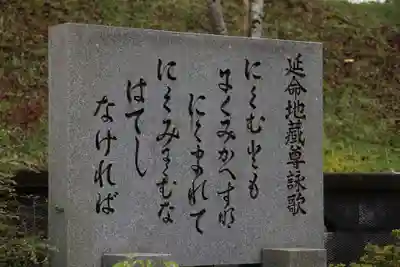 延命地藏尊詠歌
にくむとも
にくみかへすな
にくまれて
にくみにくむな
はてし
なければ